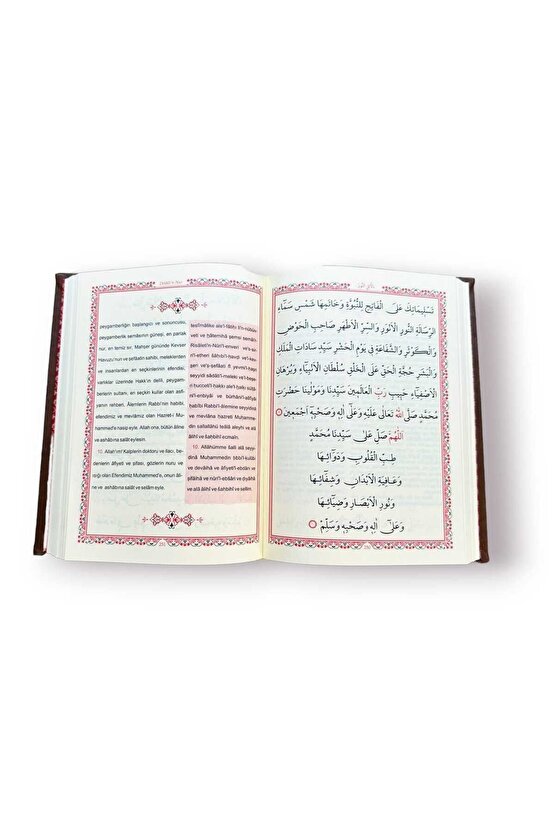 peygamberliğin başlangıcı ve sonuncusu,
peygamberlik semâsının güneşi, en parlak
nur, en temiz sır. Mahşer gününde Kevser
Havuzu'nun ve şefaatin sahibi, meleklerden
ve insanlardan en seçkinlerin efendisi,
varlıklar üzerinde Hakk'ın delili, peygam-
berlerin sultanı, en seçkin kullar olan asfi-
yanın rehberi. Âlemlerin Rabbi'nin habibi,
efendimiz ve mevlâmız olan Hazret-i Mu-
hammed'e nasip eyle. Allah ona, bütün âline
ve ashâbına salât eyylesin.
10. Allah'ım! Kalplerin doktoru ve ilacı, be-
denlerin âfiyeti ve şifası, gözlerin nuru ve
ışığı olan Efendimiz Muhammed'e, onun âli-
ne ve ashâbına salât ve selâm eyle.
teslîmâtike ale'l-fâtihı li'n-nübüv-
veti ve hâtemihâ şemsi semâi'r-
Risâleti'n-Nûri'l-enveri ve's-sir-
ri'l-etheri
ve'ş-şefâati fî yevmi'l-haşri
seyyidi sâdâti'l-meleki ve'l-beşeri
hüccetil'l-hakkı ale'l-halkı sultâ-
ni'l-enbiyâi ve bürhâni'l-asfiyâi
habîbi Rabbi'l-âlemîne seyyidinâ
ve mevlâna hazreti Muhamme-
din sallallâhü teâlâ aleyhi ve alâ
âlihî ve sahbihî ecmaîn.
10. Allâhümme salli alâ seyyi-
dinâ Muhammedin tıbbi'l-kulûbi
ve devâihâ ve âfiyeti'l-ebdâni ve
şifâihâ ve nûri'l-ebsâri ve dıyâihâ
ve alâ âlihî ve sahbihî ve sellim.
تَسْلِيمَاتِكَ عَلَى الْفَاتِحِ لِلنُّبُوَّةِ وَخَاتِمِهَا شَمْسِ سَمَاءِ
الرِّسَالَةِ النُّورِ الْاَنْوَرِ وَالسِّرِّ الْاَطْهَرِ صَاحِبِ الْحَوْضِ
وَالْكَوْثَرِ وَالشَّفَاعَةِ فِي يَوْمِ الْحَشْرِ سَيِّدِ سَادَاتِ الْمَلَكِ
وَالْبَشَرِ حُجَّةِ الْحَقِّ عَلَى الْخَلْقِ سُلْطَانِ الْاَنْبِيَاءِ وَبُرْهَانِ
الْاَصْفِيَاءِ حَبِيبِ رَبِّ الْعَالَمِينَ سَيِّدِنَا وَمَوْلٰينَا حَضْرَتِ
مُحَمَّدٍ صَلَّى اللهُ تَعَالٰى عَلَيْهِ وَعَلٰٓى اٰلِهِ وَصَحْبِهِ اَجْمَعِينَ
اَللّٰهُمَّ صَلِّ عَلٰى سَيِّدِنَا مُحَمَّدٍ
طِبِّ الْقُلُوبِ وَدَوَآئِهَا
وَعَافِيَةِ الْاَبْدَانِ وَشِفَآئِهَا
وَنُورِ الْاَبْصَارِ وَضِيَآئِهَا
وَعَلٰٓى اٰلِهِ وَصَحْبِهِ وَسَلِّمْ